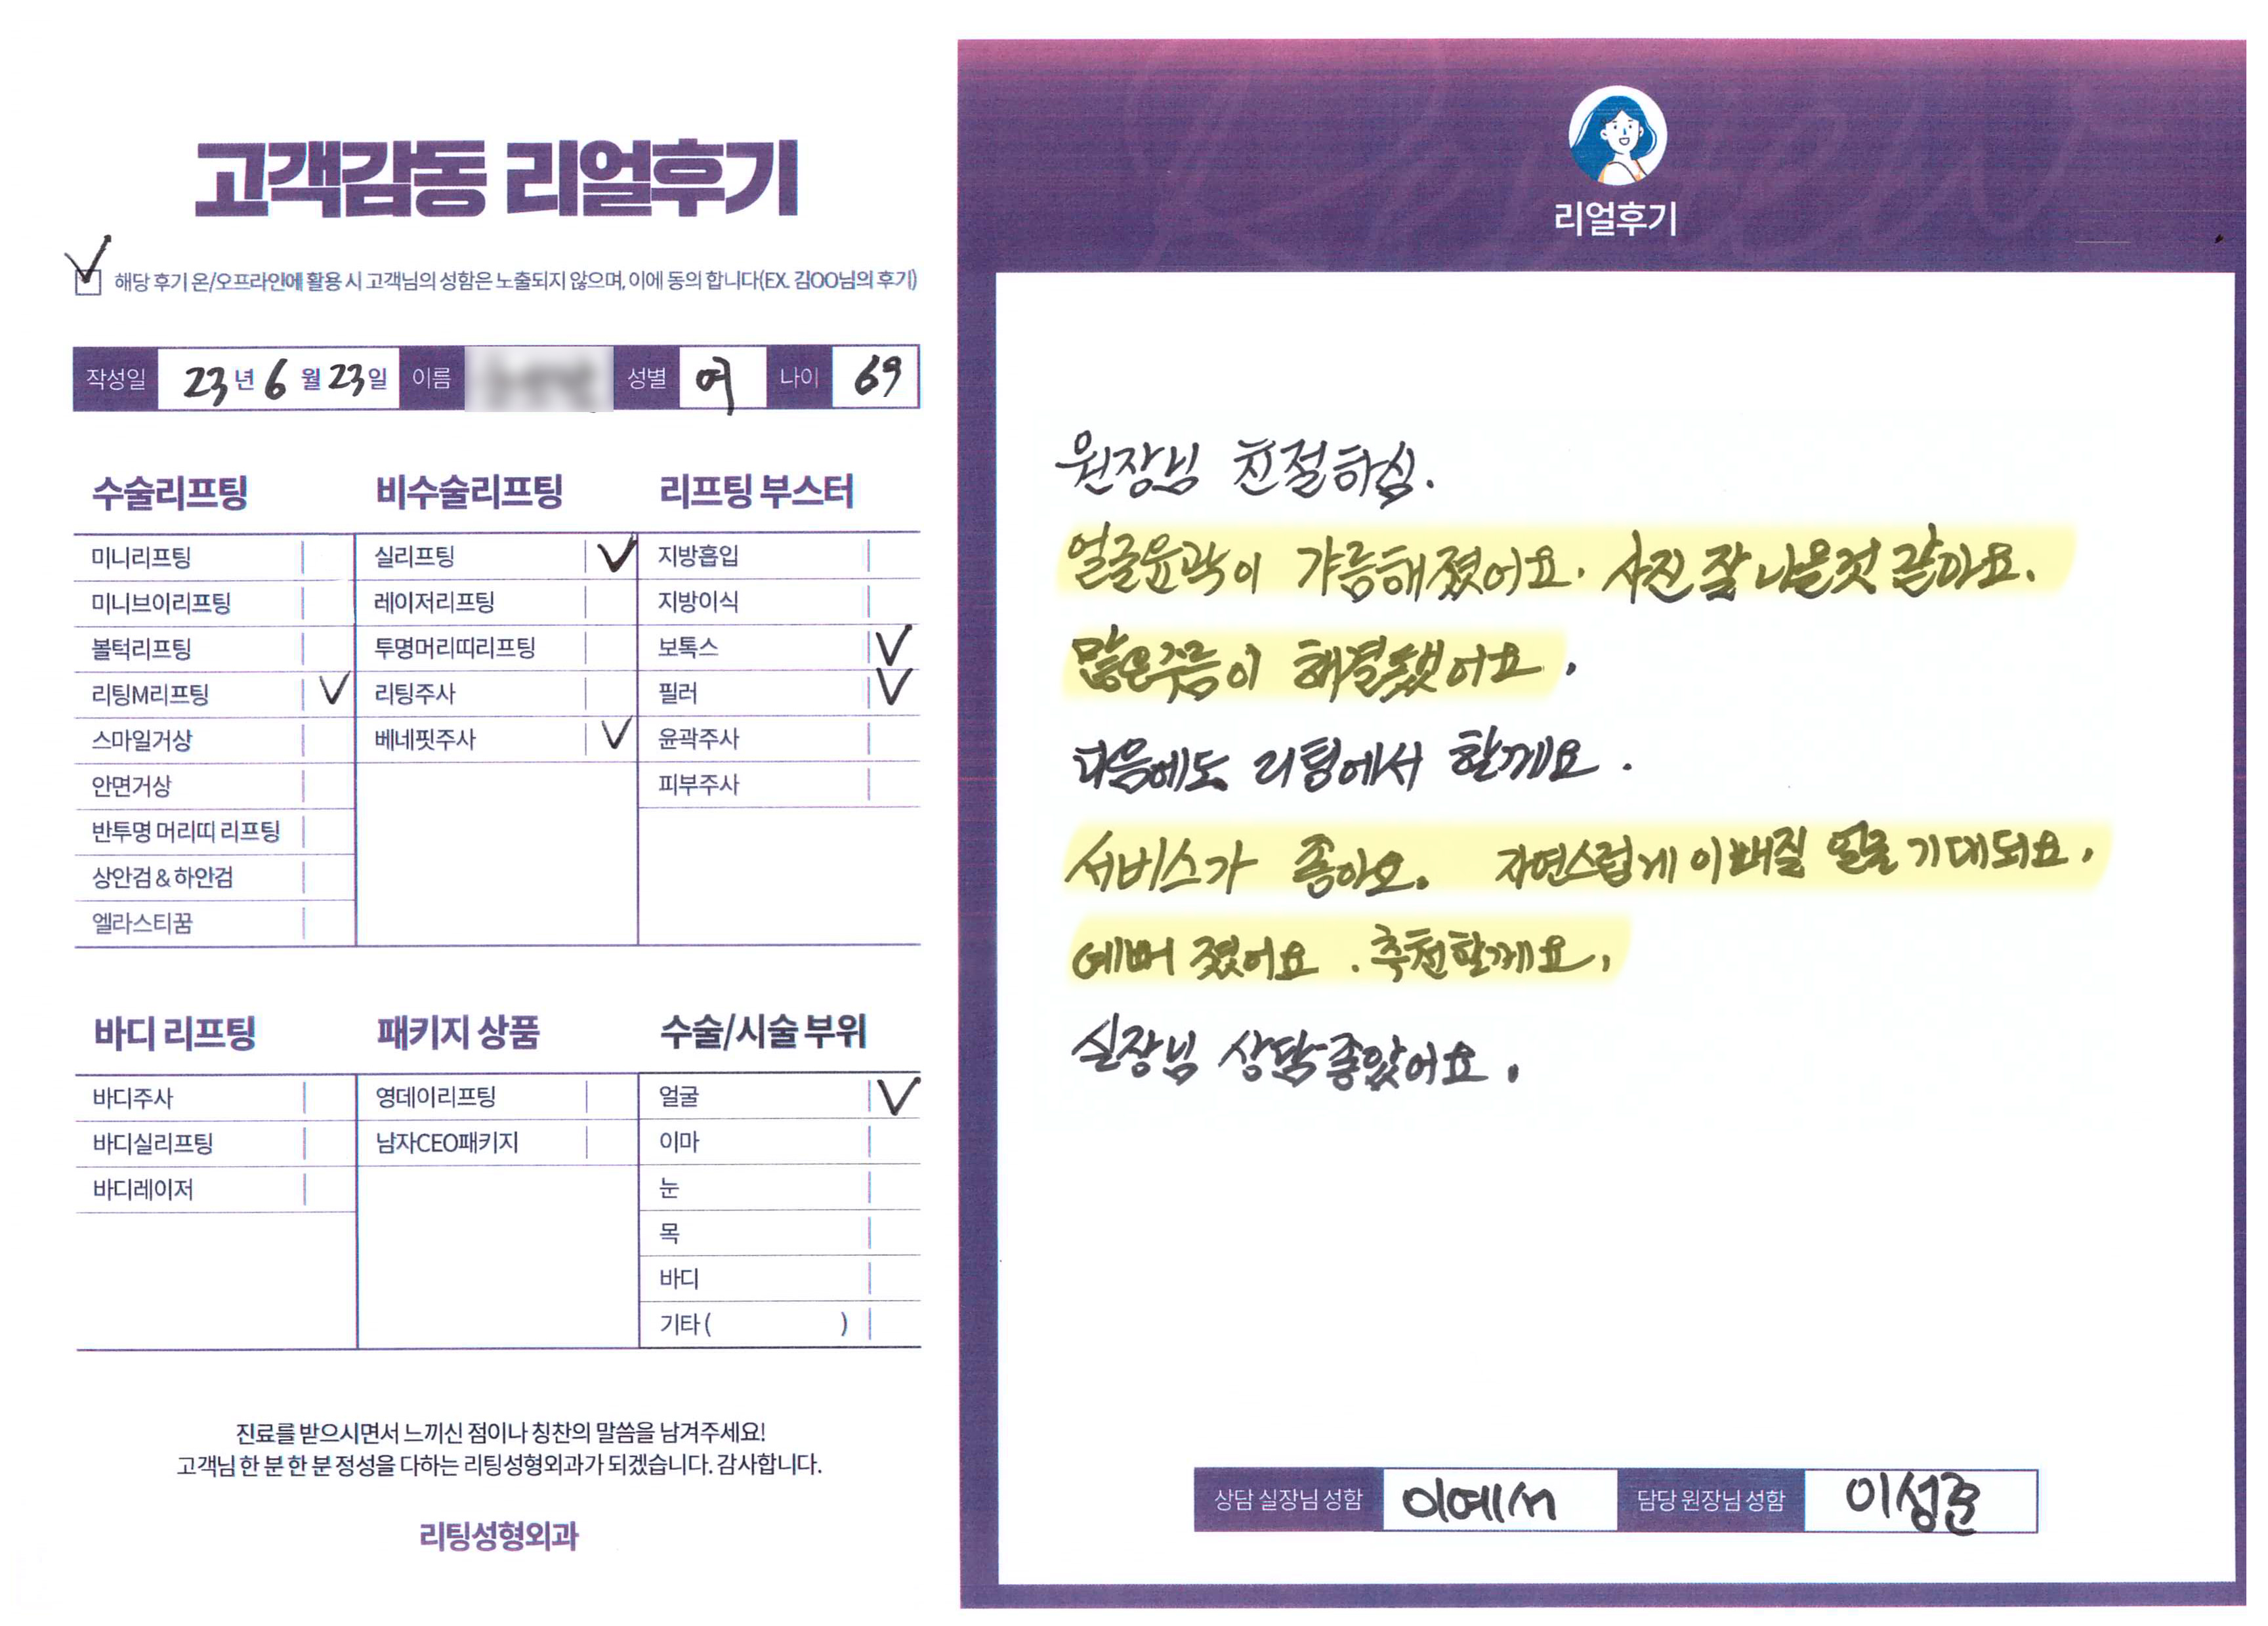 고객감동 리얼후기
해당 후기 온/오프라인에 활용 시 고객님의 성함은 노출되지 않으며, 이에 동의 합니다(EX. 김OO님의 후기)
작성일 23년 6월 23일 이름 성별 여 나이 69
수술리프팅
미니리프팅
미니브이리프팅
볼턱리프팅
리팅M리프팅
스마일거상
안면거상
반투명 머리띠 리프팅
상안검 & 하안검
엘라스티꿈
비수술리프팅
실리프팅
레이저리프팅
투명머리띠리프팅
리팅주사
베네핏주사
리프팅 부스터
지방흡입
지방이식
보톡스
필러
윤곽주사
피부주사
바디 리프팅
바디주사
바디실리프팅
바디레이저
패키지 상품
영데이리프팅
남자CEO패키지
수술/시술 부위
얼굴
이마
눈
목
바디
기타 ( )
진료를 받으시면서 느끼신 점이나 칭찬의 말씀을 남겨주세요!
고객님 한 분 한 분 정성을 다하는 리팅성형외과가 되겠습니다. 감사합니다.
리팅성형외과
리얼후기
원장님 친절하심.
얼굴윤곽이 갸름해졌어요. 사진 잘 나온것 같아요.
많은주름이 해결됐어요.
다음에도 리팅에서 할께요.
서비스가 좋아요. 자연스럽게 이뻐질 얼굴 기대되요.
예뻐 졌어요. 추천할께요.
실장님 상담좋았어요.
상담 실장님 성함 이예서 담당 원장님 성함 이성준